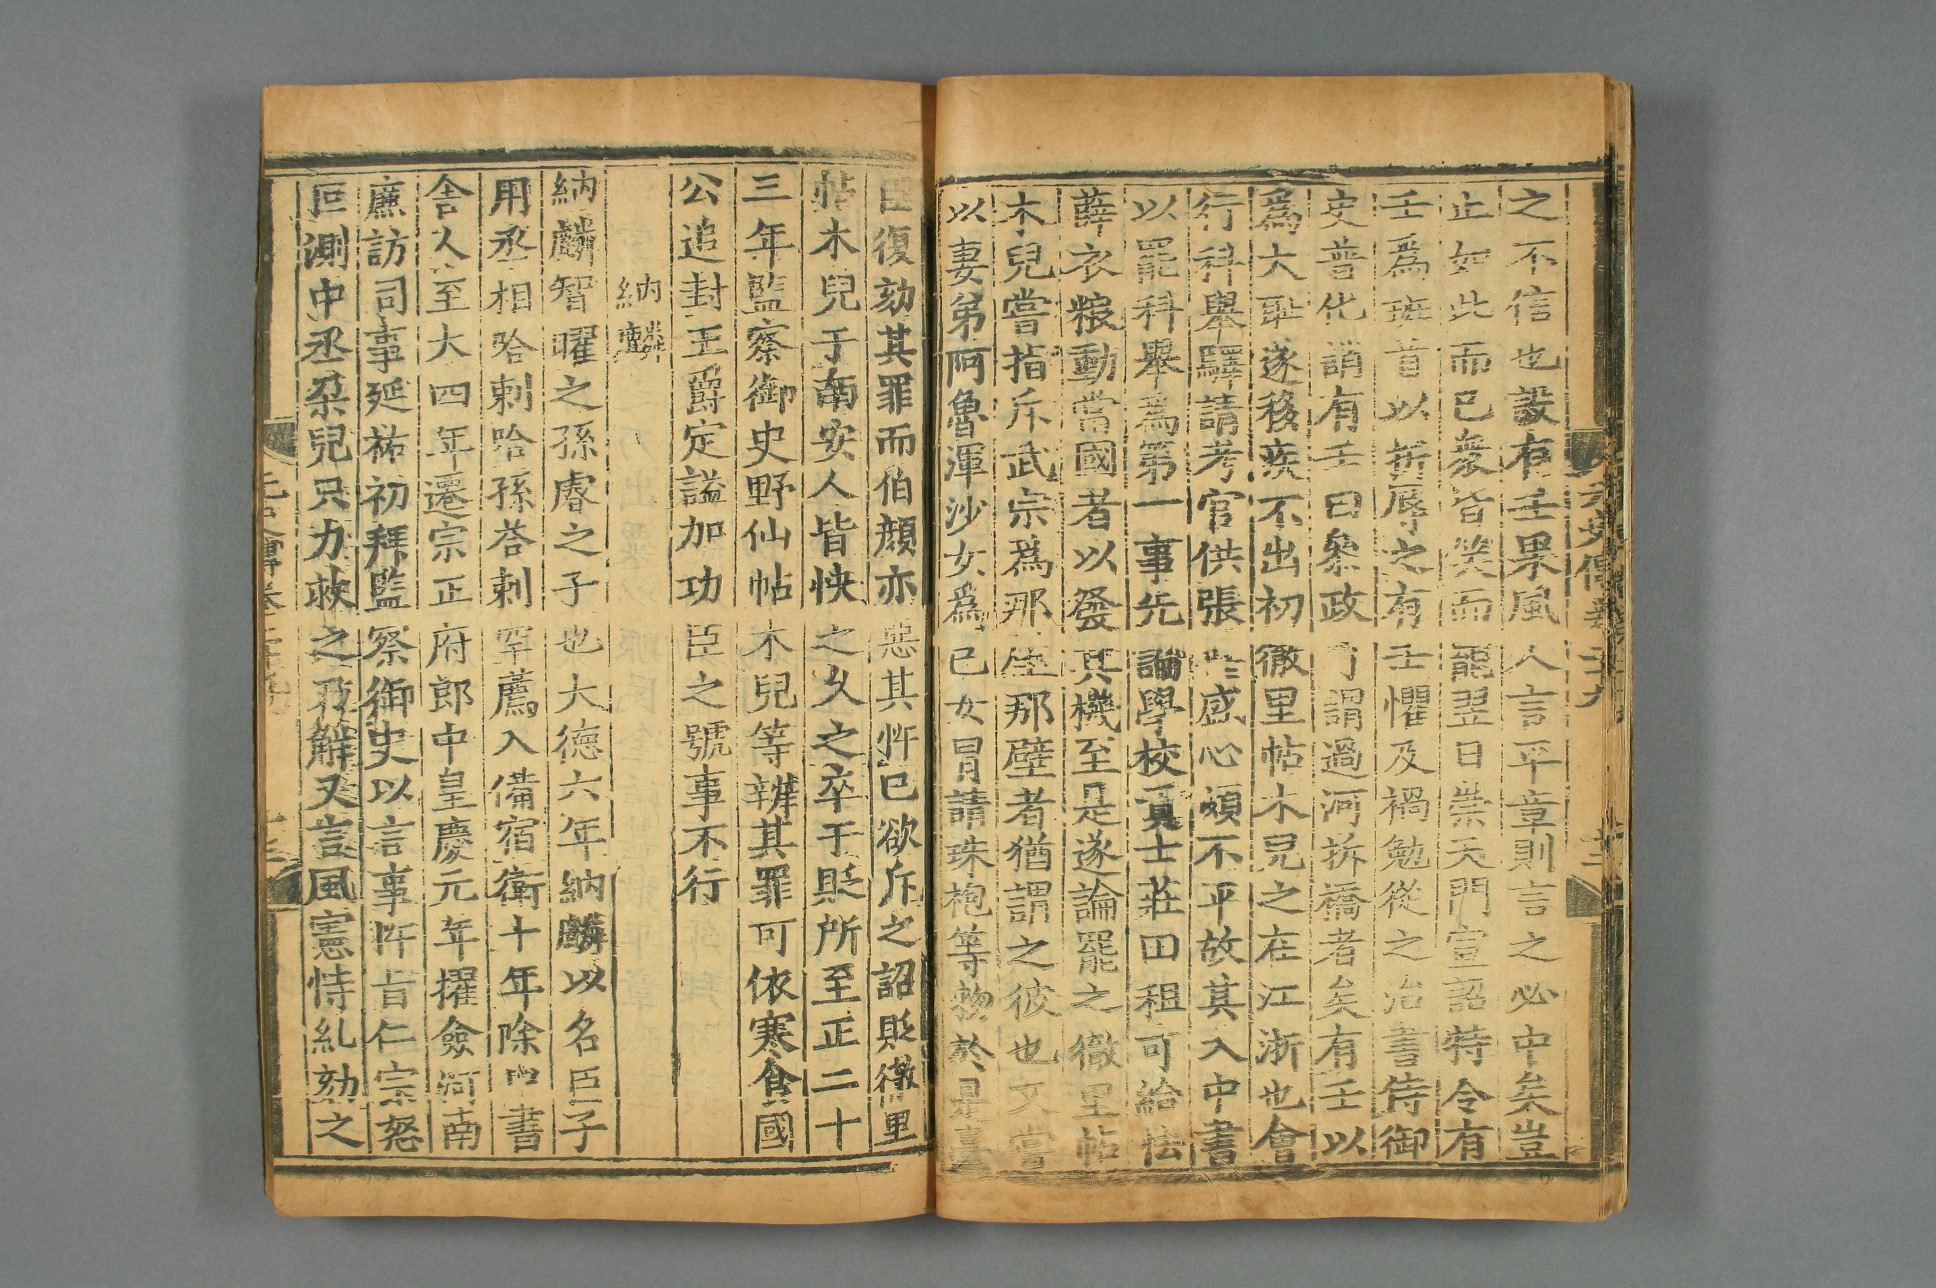 之不信也設有壬果風人言平章則言之必中矣豈
止如此而已衆皆笑而罷翌日崇天門宣詔特令有
壬爲班首以折辱之有壬懼及禍勉從之治書侍御
史普化誚有壬曰參政可謂過河拆橋者矣有壬以
爲大恥遂移疾不出初徹里帖木兒之在江浙也會
行科舉驛請考官供張甚盛心頗不平故其入中書
以罷科舉爲第一事先論學校貢士莊田租可給怯
薛衣粮動當國者以發其機至是遂論罷之徹里帖
木兒嘗指斥武宗爲那壁那壁者猶謂之彼也又嘗
以妻弟阿魯渾沙女爲己女冒請珠袍等物於是臺
臣復劾其罪而伯顔亦惡其忤已欲斥之詔貶徹里
帖木兒于南安人皆快之久之卒于貶所至正二十
三年監察御史野仙帖木兒等辨其罪可依寒食國
公追封王爵定謚加功臣之號事不行
納麟
納麟智曜之孫睿之子也大德六年納麟以名臣子
用丞相哈剌哈孫荅剌罕薦入備宿衛十年除中書
舍人至大四年遷宗正府郎中皇慶元年擢僉河南
廉訪司事延祐初拜監察御史以言事忤旨仁宗怒
叵測中丞朶兒只力救之乃解又言風憲恃糺劾之
元史傳卷二十九
十三